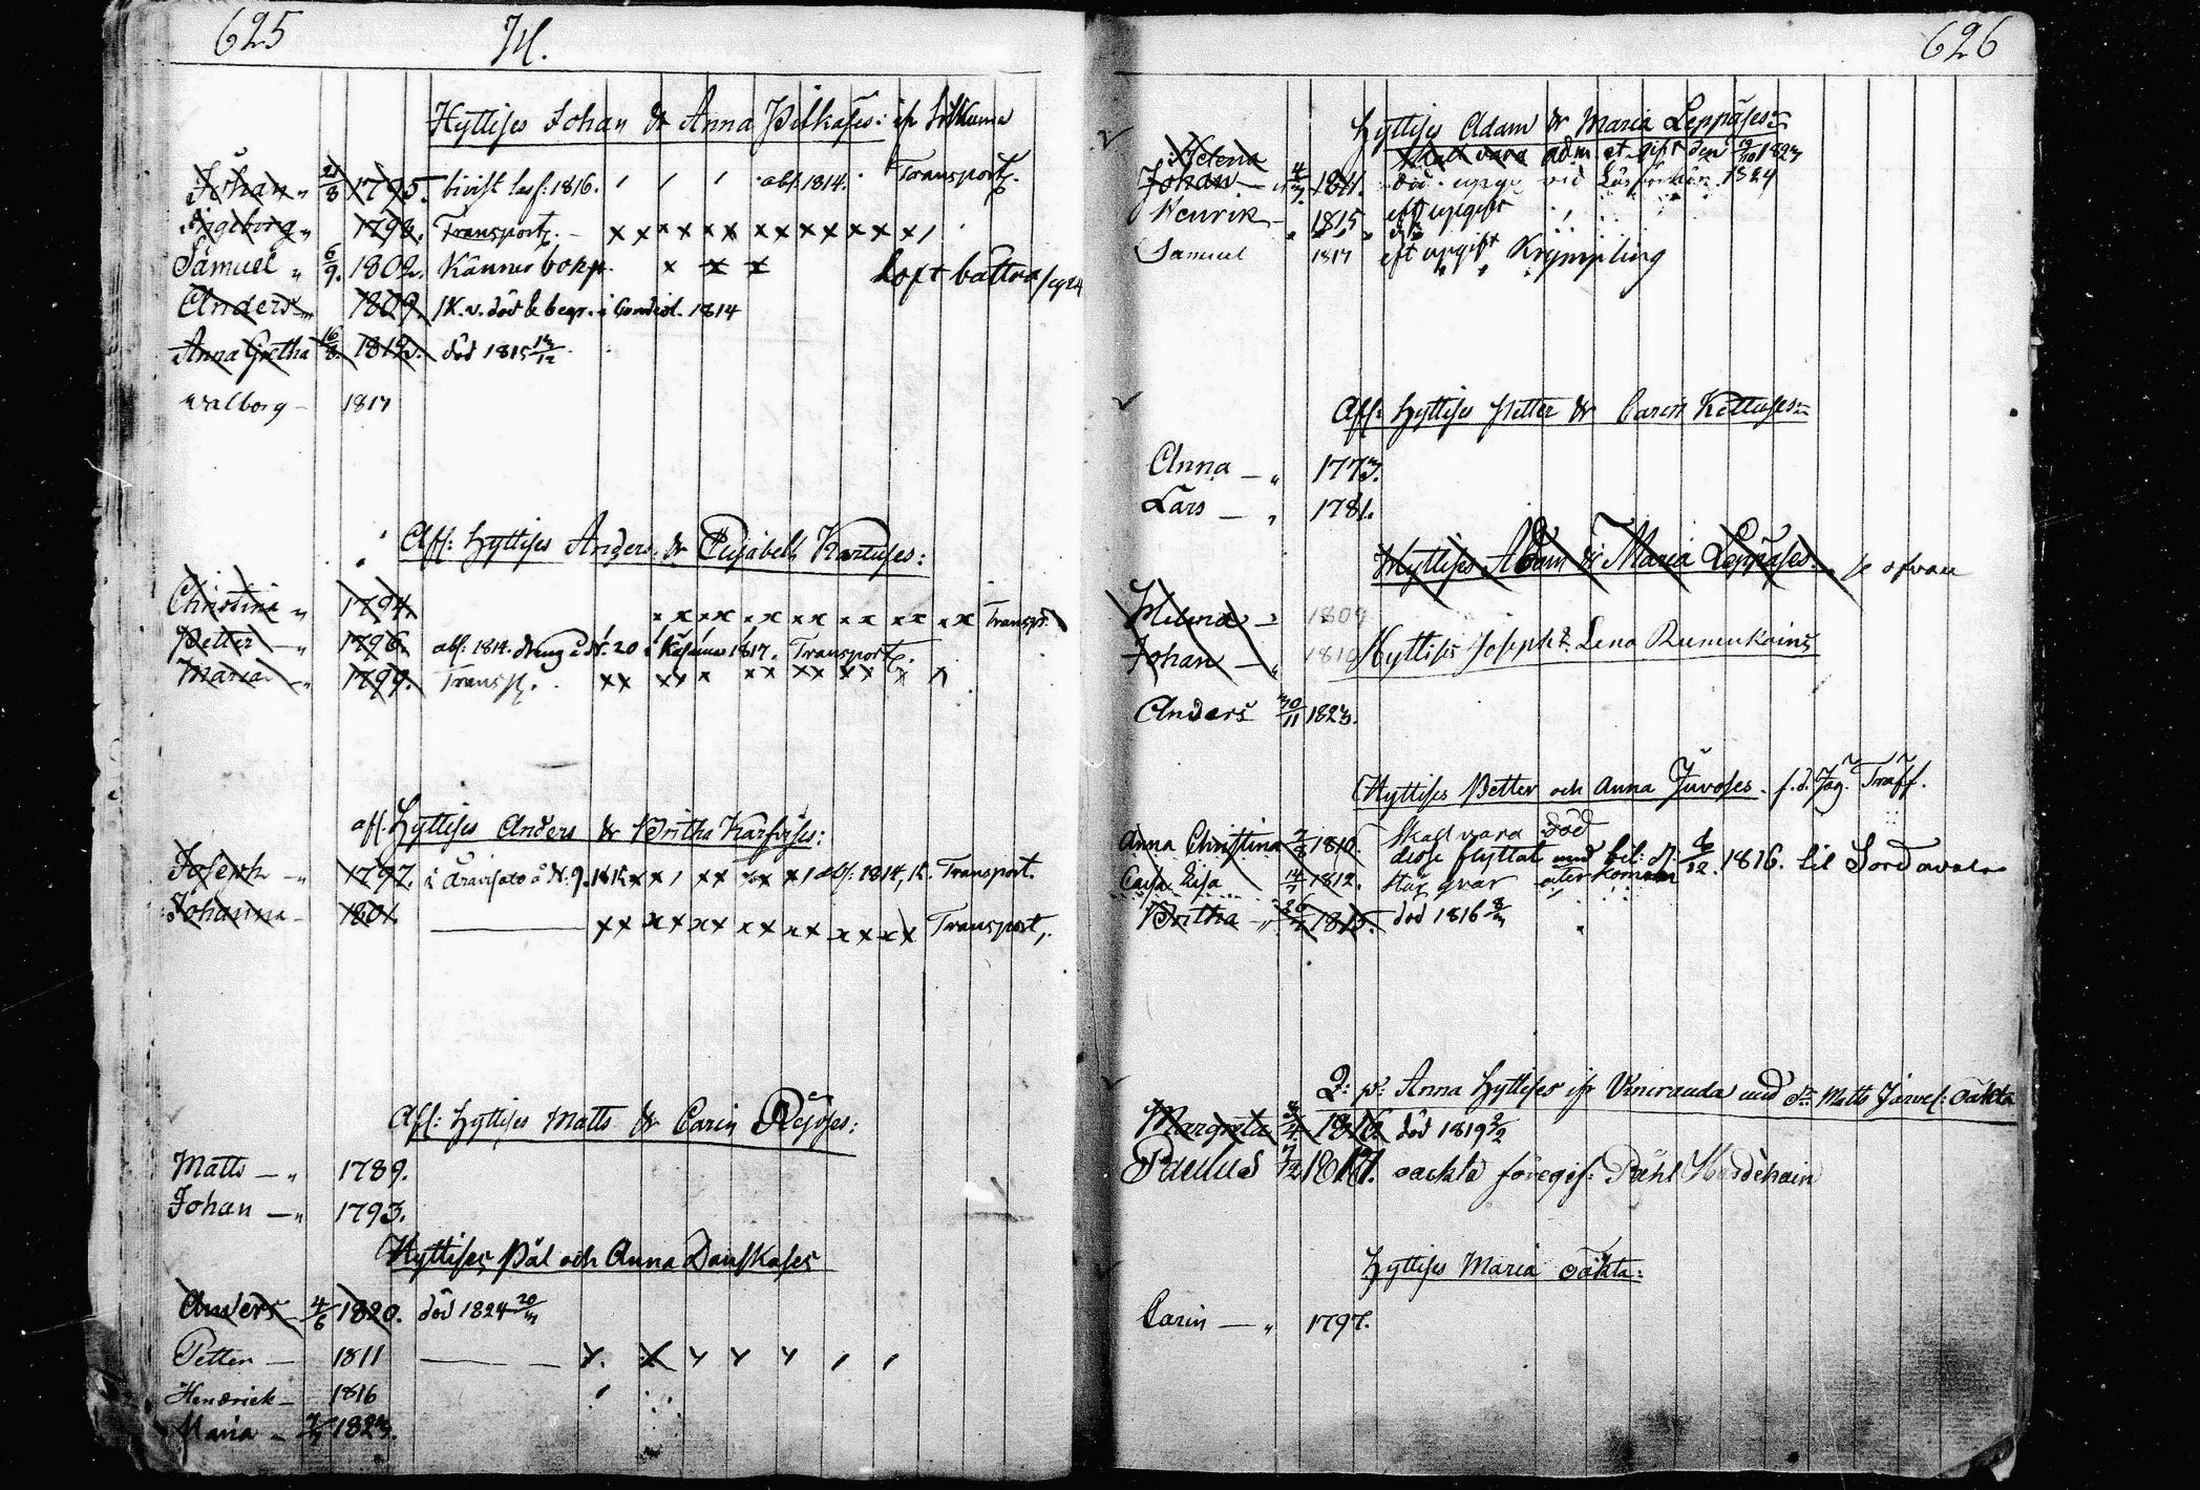 625 H.
Hyttises Johan & Anna Pitkäses:
Johan „ 21/8 1795. bivist läsf: 1816. abs. 1814. Transport.
Ingeborg „ 1798. Transport. – x x x x x x x x x x x x x
Samuel „ 6/9. 1802. Känner bokst. x x x loft bättra sig 24
Anders „ 1809. K. v. död & begr. i 1814
Anna Gretha 16/8. 1812. död 1815
Walborg – 1817
Aff: Hyttises Anders & Elisabeth Kartuses:
Christina „ 1794. x x x x x x x x x x x x x x Transp.
Petter – „ 1796. abs. 1814. dräng å N. 20 i 1817. Transport.
Maria – „ 1799. Transp. x x x x x x x x x x x x x x
aff. Hyttises Anders & Britha Karhises:
Joseph – „ 1797. å N: 9. x x x x x x abs: 1814, K. Transport.
Johanna – 1801. x x x x x x x x x x x x x x Transport,
Aff: Hyttises Matts & Carin
Matts – „ 1789.
Johan – „ 1793.
Hyttises Pål och Anna Danskases
Anders – 4/6 1820. död 1824
Petter – 1811
Hendrick – 1816
Maria – 1823.
626
Hyttises Adam & Maria Leppäses
Helena Skall vara adm. et gift den 19/10 1823
Johan – „ 4/7. 1811. död. uppg. vid Läsförhör. 1824
Henrik – „ 1815 eft uppgift
Samuel 1817 eft uppgift Krympling
Aff: Hyttises Petter & Carin Kettuses
Anna – „ 1773.
Lars – „ 1781.
Hyttises Adam & Maria Leppäses. se ofvan
Helena – „ 1809
Johan – „ 1810 Hyttises Joseph & Lena
Anders 30/11 1823.
Hyttises Petter och Anna Juvoses. f. d. Jäg. Träff.
Anna Christina 1810. Skall vara död
desse flyttat med bet: d. 6/12. 1816. til Sordavala
Caisa Lisa 14/7 1812. står qvar återkommen
Britha – „ 26/7 1815. död 1816
Q: p: Anna Hyttises med Matts oäkta
Margreta 1816. död 1819
Paulus 1817. oäkta föregif: Påhl
Hyttises Maria oäkta:
Carin – „ 1797.